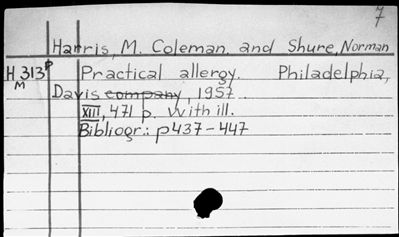 7
Harris, M. Coleman. and Shure, Norman
H 313p Practical allergy. Philadelphia,
M Davis company, 1957.
XIII, 471 p. With ill.
Bibliogr.: p 437-447